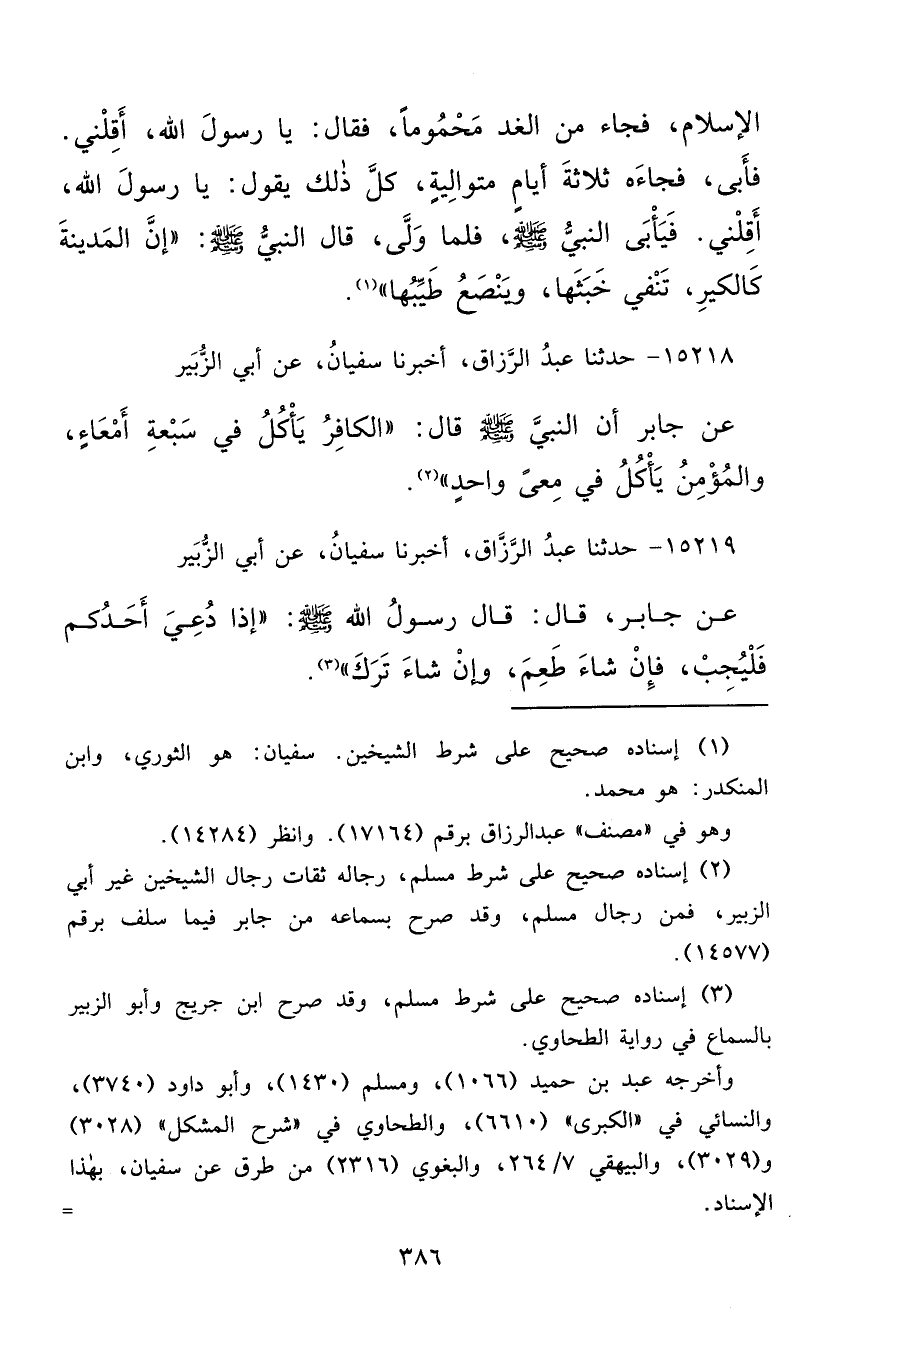 الإسلام، فجاء من الغد مَحْمُوماً، فقال: يا رسولَ الله، أَقِلْني.
فأَبى، فجاءَه ثلاثةَ أيامٍ متوالِيةٍ، كلَّ ذٰلك يقول: يا رسولَ الله،
أَقِلْني. فَيَأْبَى النبيُّ ﷺ، فلما وَلَّى، قال النبيُّ ﷺ: «إنَّ المَدينةَ
كَالكيرِ، تَنْفي خَبَثَها، ويَنْصَعُ طَيِّبُها»(١).
١٥٢١٨- حدثنا عبدُ الرَّزاق، أخبرنا سفيانُ، عن أبي الزُّبَير
عن جابر أن النبيَّ ﷺ قال: «الكافِرُ يَأْكُلُ في سَبْعةِ أَمْعَاءٍ،
والمُؤْمِنُ يَأْكُلُ في مِعىً واحدٍ»(٢).
١٥٢١٩- حدثنا عبدُ الرَّزَّاق، أخبرنا سفيانُ، عن أبي الزُّبَير
عن جابر، قال: قال رسولُ الله ﷺ: «إذا دُعِيَ أَحَدُكم
فَلْيُجِبْ، فإِنْ شاءَ طَعِمَ، وإنْ شاءَ تَرَكَ»(٣).
(١) إسناده صحيح على شرط الشيخين. سفيان: هو الثوري، وابن
المنكدر: هو محمد.
وهو في «مصنف» عبدالرزاق برقم (١٧١٦٤). وانظر (١٤٢٨٤).
(٢) إسناده صحيح على شرط مسلم، رجاله ثقات رجال الشيخين غير أبي
الزبير، فمن رجال مسلم، وقد صرح بسماعه من جابر فيما سلف برقم
(١٤٥٧٧).
(٣) إسناده صحيح على شرط مسلم، وقد صرح ابن جريج وأبو الزبير
بالسماع في رواية الطحاوي.
وأخرجه عبد بن حميد (١٠٦٦)، ومسلم (١٤٣٠)، وأبو داود (٣٧٤٠)،
والنسائي في «الكبرى» (٦٦١٠)، والطحاوي في «شرح المشكل» (٣٠٢٨)
و(٣٠٢٩)، والبيهقي ٢٦٤/٧، والبغوي (٢٣١٦) من طرق عن سفيان، بهٰذا
الإسناد. =
٣٨٦